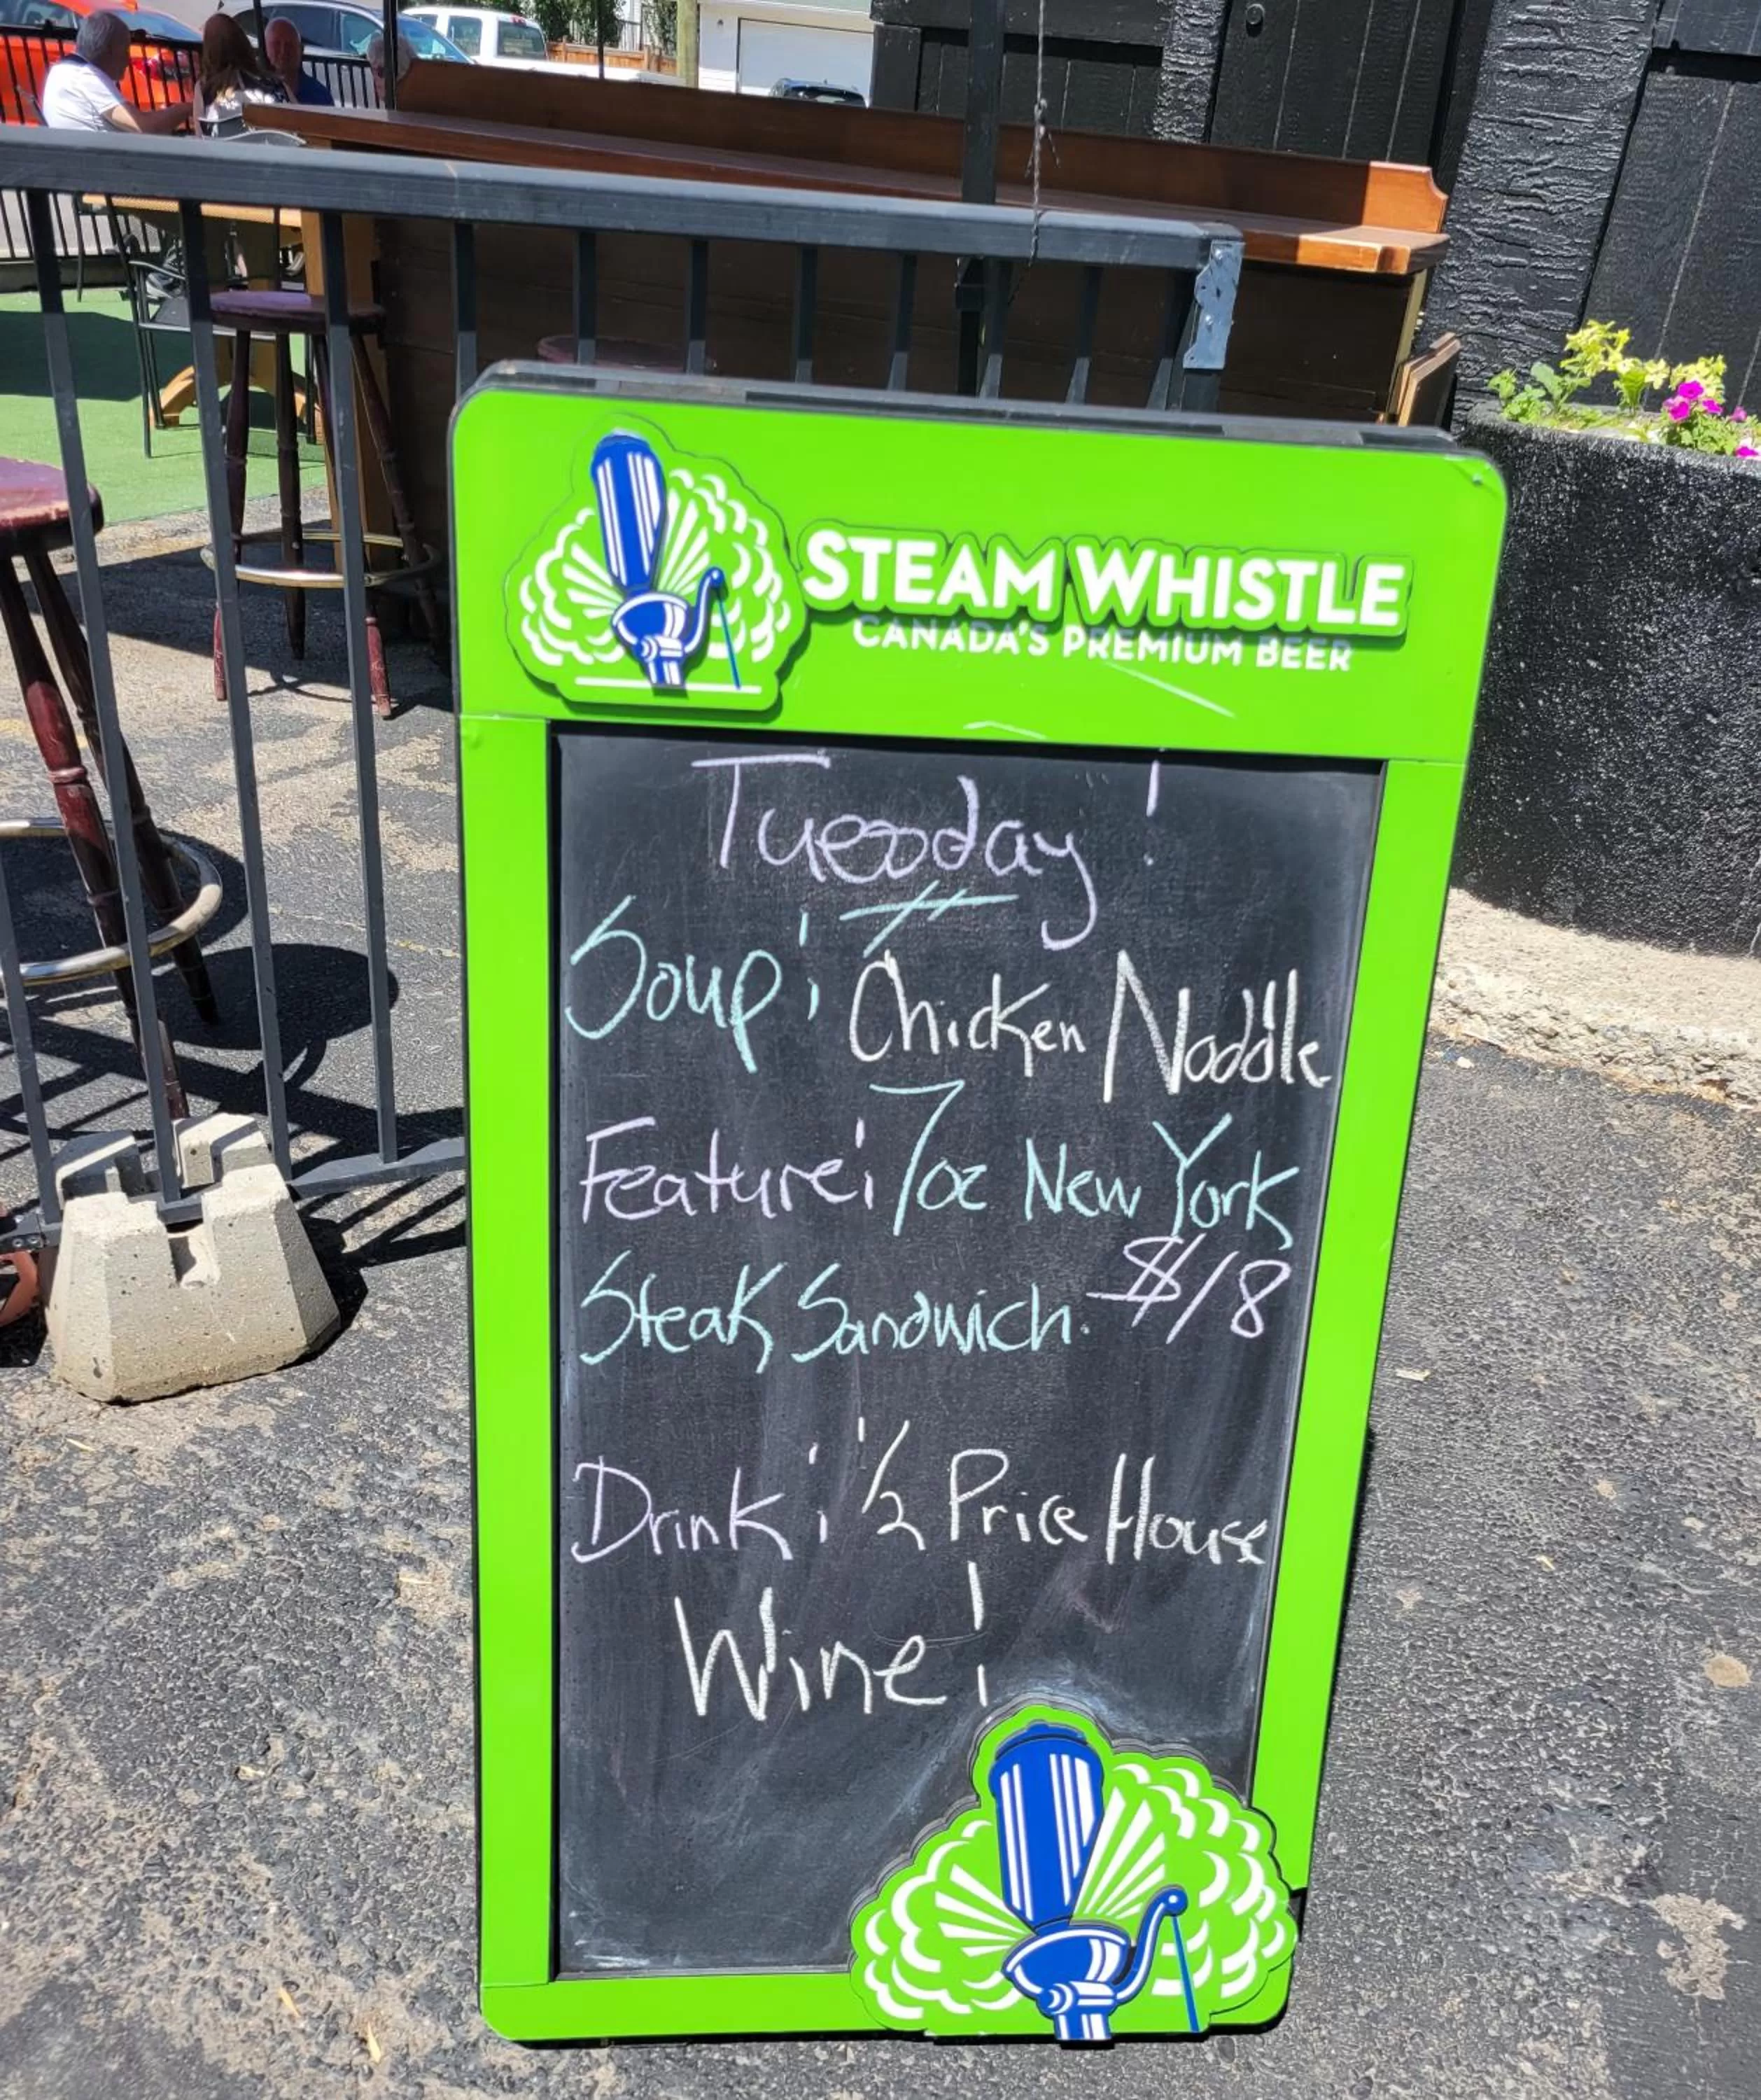 STEAM WHISTLE
CANADA'S PREMIUM BEER
Tuesday!
Soup: Chicken Noodle
Feature: 7oz New York
Steak Sandwich. $18
Drink: 1/2 Price House
Wine!